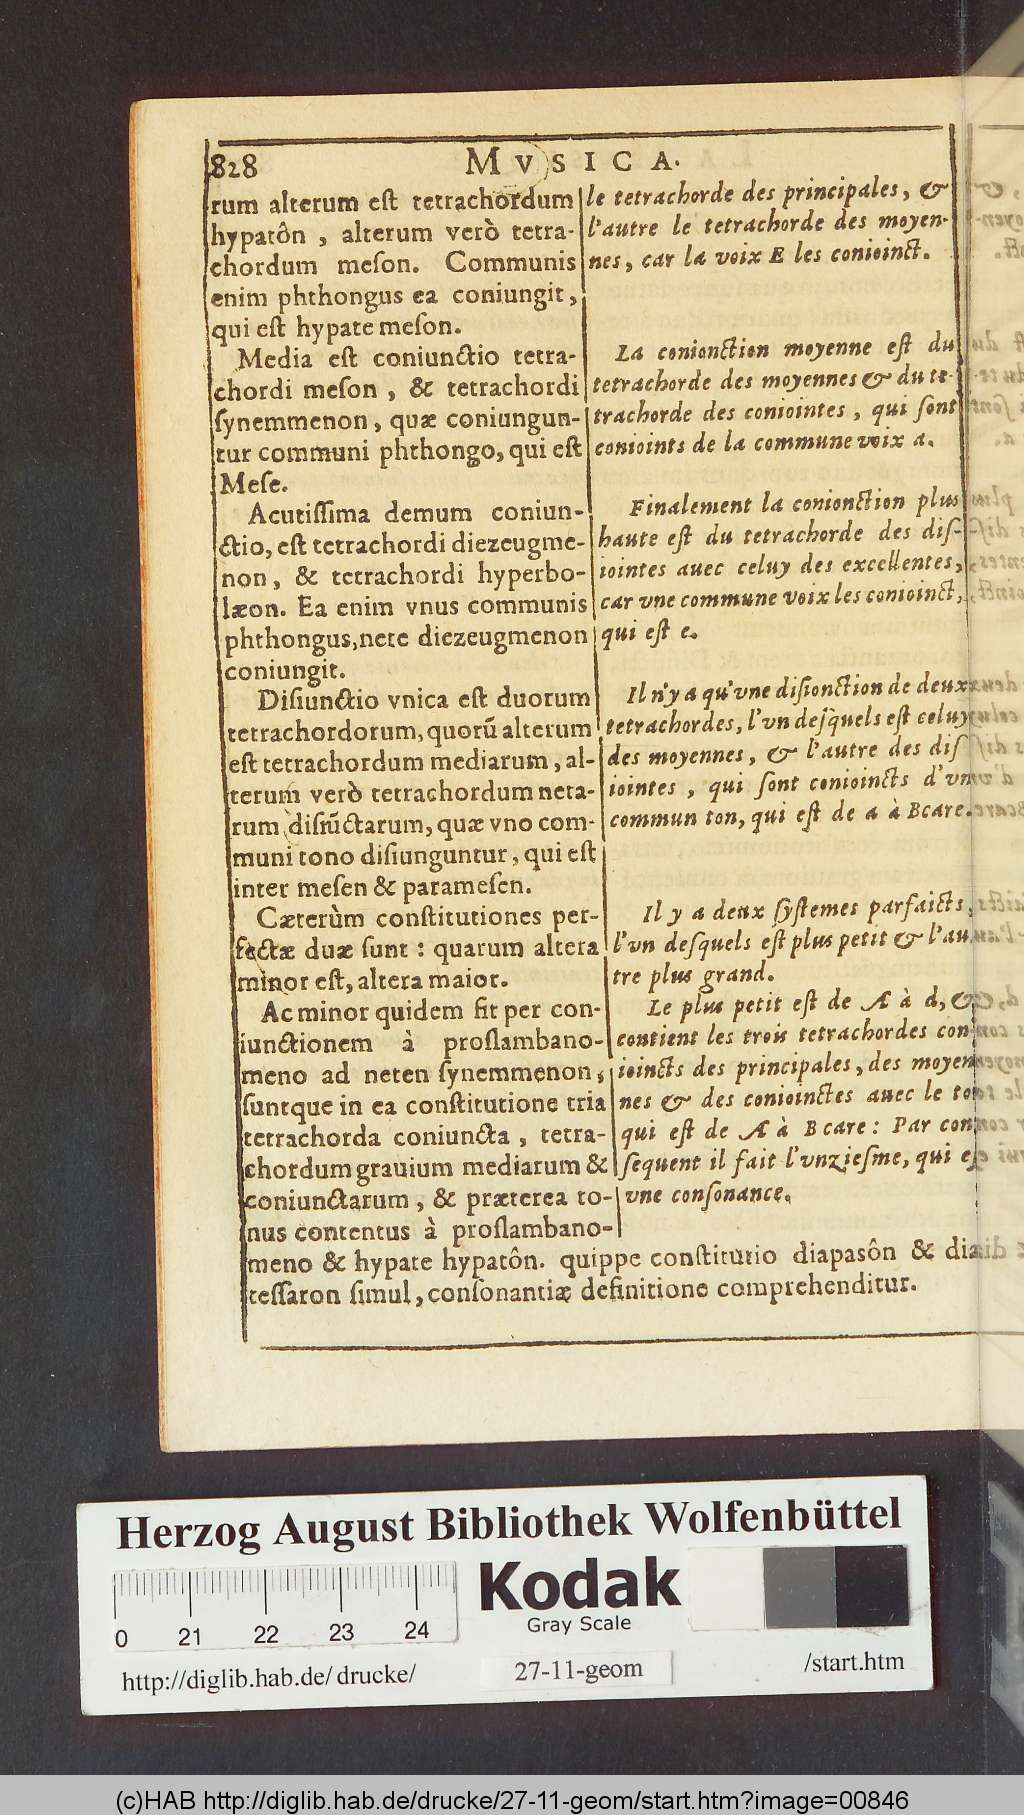 828 MVSICA.
rum alterum eſt tetrachordum
hypatôn , alterum verò tetra-
chordum meſon. Communis
enim phthongus ea coniungit,
qui eſt hypate meſon.
Media eſt coniunctio tetra-
chordi meſon , & tetrachordi
ſynemmenon, quæ coniungun-
tur communi phthongo, qui eſt
Meſe.
Acutiſſima demum coniun-
ctio, eſt tetrachordi diezeugme-
non, & tetrachordi hyperbo-
læon. Ea enim vnus communis
phthongus, nete diezeugmenon
coniungit.
Diſiunctio vnica eſt duorum
tetrachordorum, quorū alterum
eſt tetrachordum mediarum, al-
terum verò tetrachordum neta-
rum diſiūctarum, quæ vno com-
muni tono diſiunguntur, qui eſt
inter meſen & parameſen.
Cæterùm conſtitutiones per-
fectæ duæ ſunt : quarum altera
minor eſt, altera maior.
Ac minor quidem fit per con-
iunctionem à proſlambano-
meno ad neten ſynemmenon,
ſuntque in ea conſtitutione tria
tetrachorda coniuncta, tetra-
chordum grauium mediarum &
coniunctarum, & præterea to-
nus contentus à proſlambano-
meno & hypate hypatôn. quippe conſtitutio diapasôn & dia
teſſaron ſimul, conſonantiæ definitione comprehenditur.
le tetrachorde des principales, &
l'autre le tetrachorde des moyen-
nes, car la voix E les conioinct.
La conionction moyenne eſt du
tetrachorde des moyennes & du te-
trachorde des coniointes, qui ſont
conioints de la commune voix a.
Finalement la conionction plus
haute eſt du tetrachorde des diſ-
iointes auec celuy des excellentes,
car vne commune voix les conioinct,
qui eſt e.
Il n'y a qu'vne diſionction de deux
tetrachordes, l'vn deſquels eſt celuy
des moyennes, & l'autre des diſ
iointes, qui ſont conioincts d'vn
commun ton, qui eſt de a à B care.
Il y a deux ſyſtemes parfaicts,
l'vn deſquels eſt plus petit & l'au
tre plus grand.
Le plus petit eſt de Æ à d, &
contient les trois tetrachordes con
ioincts des principales, des moyen
nes & des conioinctes auec le ton
qui eſt de Æ à B care : Par con
ſequent il fait l'vnzieſme, qui eſ
vne conſonance.
Herzog August Bibliothek Wolfenbüttel
Kodak
Gray Scale
0 21 22 23 24
http://diglib.hab.de/ drucke/ 27-11-geom /start.htm
(c)HAB http://diglib.hab.de/drucke/27-11-geom/start.htm?image=00846